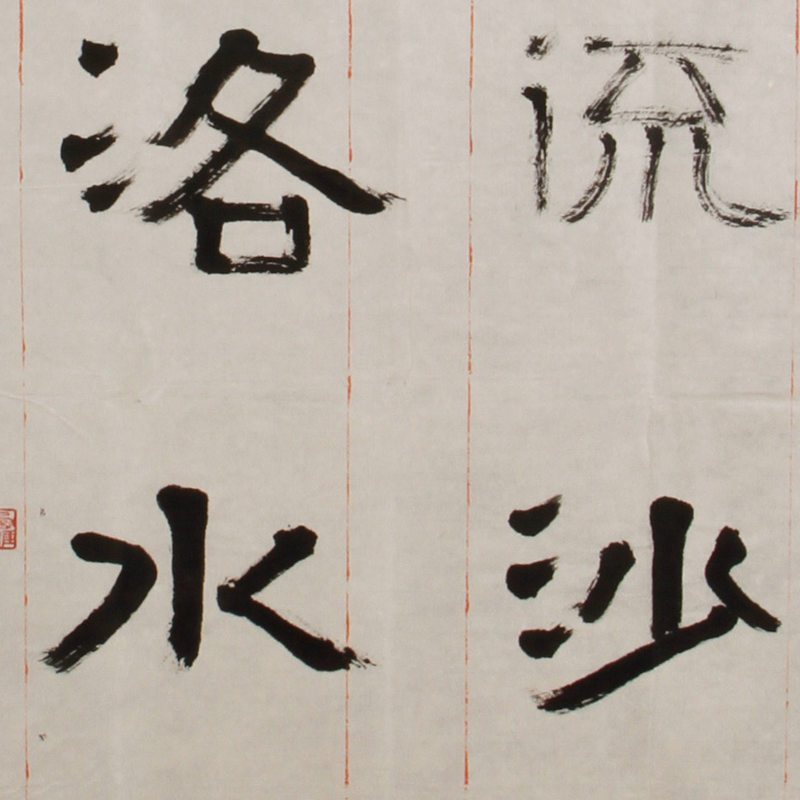 流沙
洛水